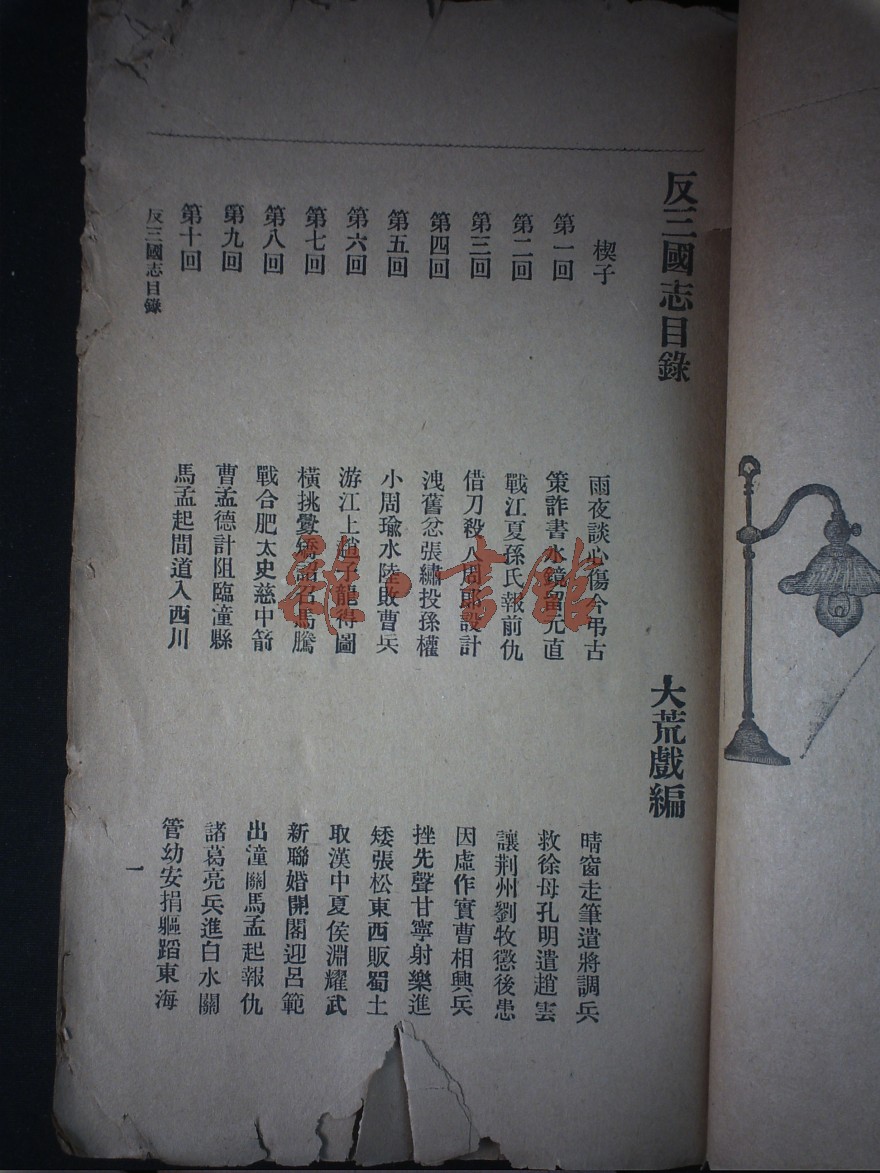 反三國志目錄 大荒戲編
楔子 雨夜談心傷今弔古 晴窗走筆遣將調兵
第一回 策詐書水鏡留元直 救徐母孔明遣趙雲
第二回 戰江夏孫氏報前仇 讓荆州劉牧懲後患
第三回 借刀殺人周郎設計 因虛作實曹相興兵
第四回 洩舊忿張繡投孫權 挫先聲甘寧射樂進
第五回 小周瑜水陸敗曹兵 矮張松東西販蜀土
第六回 游江上趙子龍得圖 取漢中夏侯淵耀武
第七回 橫挑釁矯詔召馬騰 新聯婚開閣迎呂範
第八回 戰合肥太史慈中箭 出潼關馬孟起報仇
第九回 曹孟德計阻臨潼縣 諸葛亮兵進白水關
第十回 馬孟起間道入西川 管幼安捐軀蹈東海
反三國志目錄 一
雜·書館